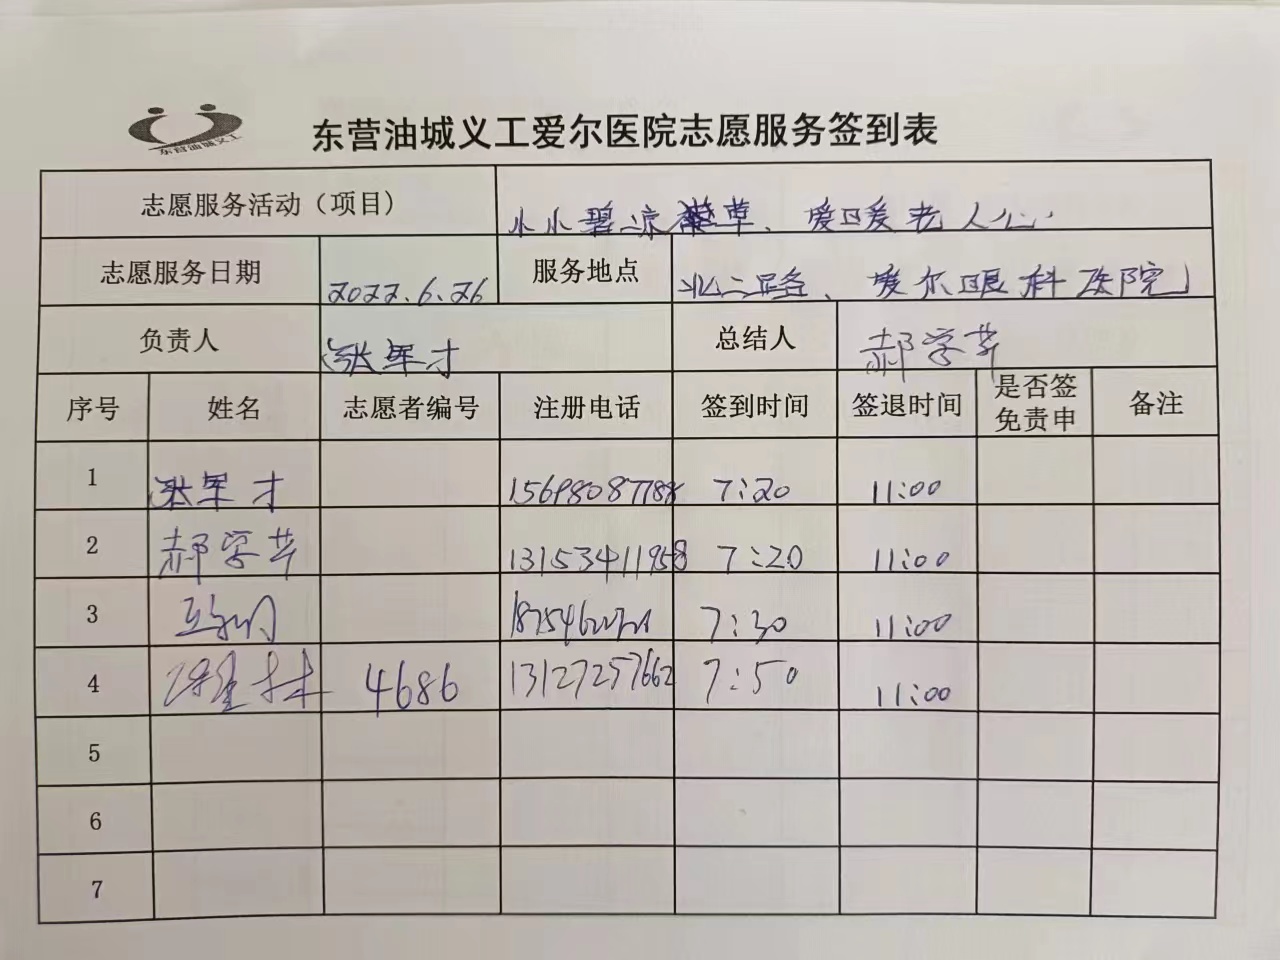 东营油城义工
东营油城义工爱尔医院志愿服务签到表
志愿服务活动（项目） 小小碧凉草、爱日爱老人心
志愿服务日期 2022.6.26 服务地点 北二路、爱尔眼科医院
负责人 张军才 总结人 郝学芹
序号 姓名 志愿者编号 注册电话 签到时间 签退时间 是否签免责申 备注
1 张军才 7:20 11:00
2 郝学芹 13153411958 7:20 11:00
3 7:30 11:00
4 4686 13127257662 7:50 11:00
5
6
7